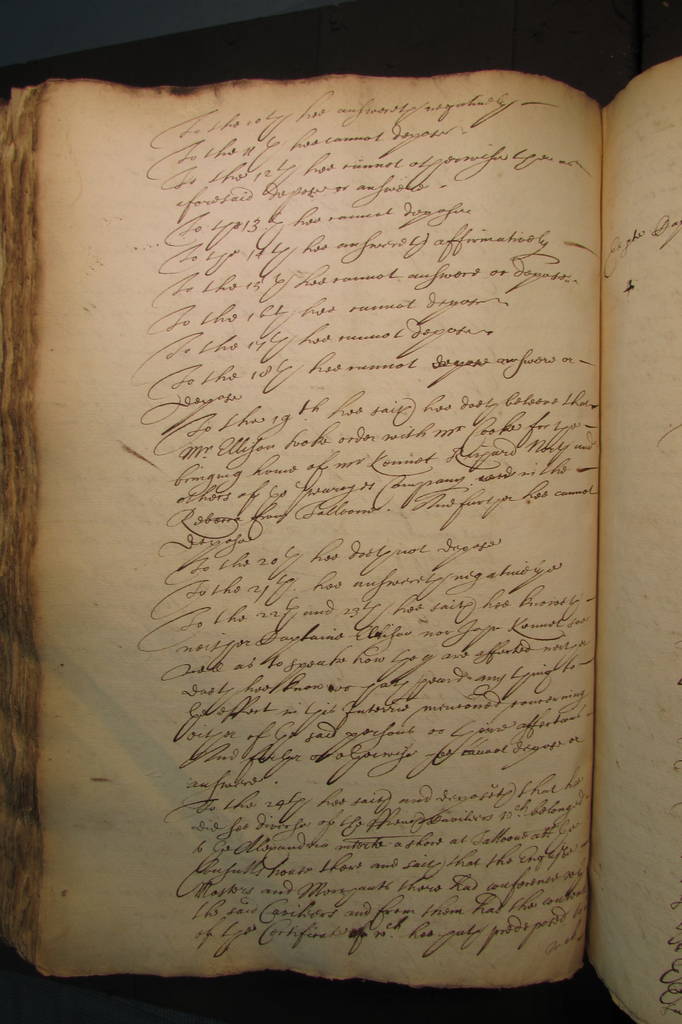 To the 10th hee answereth negatively
To the 11th hee cannot depose
To the 12th hee cannot otherwise then as
aforesaid depose or answere.
To the 13th hee cannot depose
To the 14th hee answereth affirmatively
To the 15th hee cannot answere or depose.
To the 16th hee cannot depose
To the 17th hee cannot depose.
To the 18th hee cannot depose answere or
depose
To the 19th hee saith hee doth beleeve that
Mr Ellison tooke order with mr Cooke for the
bringing home of mr Kennet Richard North and
others of the Companie in the
from Talloone. And further hee cannot
depose
To the 20th hee doth not depose
To the 21th hee answereth negatively
To the 22th and 23th hee saith hee knoweth
neither Captaine Ellison nor John Kennet soe
well as to speake how they are affected neither
doth hee know or hath heard any thing to
the effect in this Interrie mentioned concerning
either of the said persons or their affections
And otherwise hee cannot depose or
answere.
To the 24th hee saith and deposeth that he
did see diverse of the ffrench Caviliers wch belonged
to the Alexander ashore at Talloone att the
Consulls house there and saith that the English
Masters and Merchants there had conference with
the said Caviliers and from them had the
of the Certificate of wch hee hath predeposed